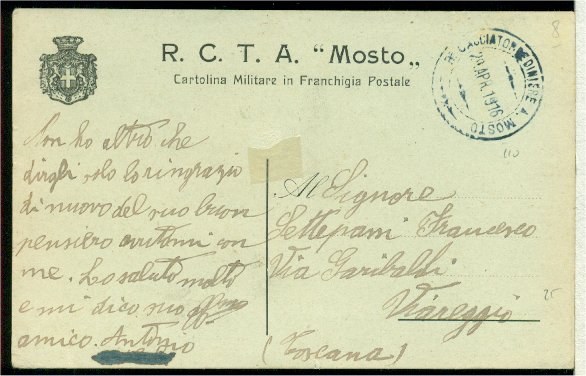 R. C. T. A. "Mosto„
Cartolina Militare in Franchigia Postale
CACCIATORPEDINIERE A. MOSTO
29 APR. 1916
8
110
Non ho altro che
dirgli solo lo ringrazio
di nuovo del suo buon
pensiero avutomi con
me. Lo saluto molto
e mi dico suo aff.mo
amico. Antonio
Al Signore
Settepani Francesco
Via Garibaldi
Viareggio
25
(Toscana)